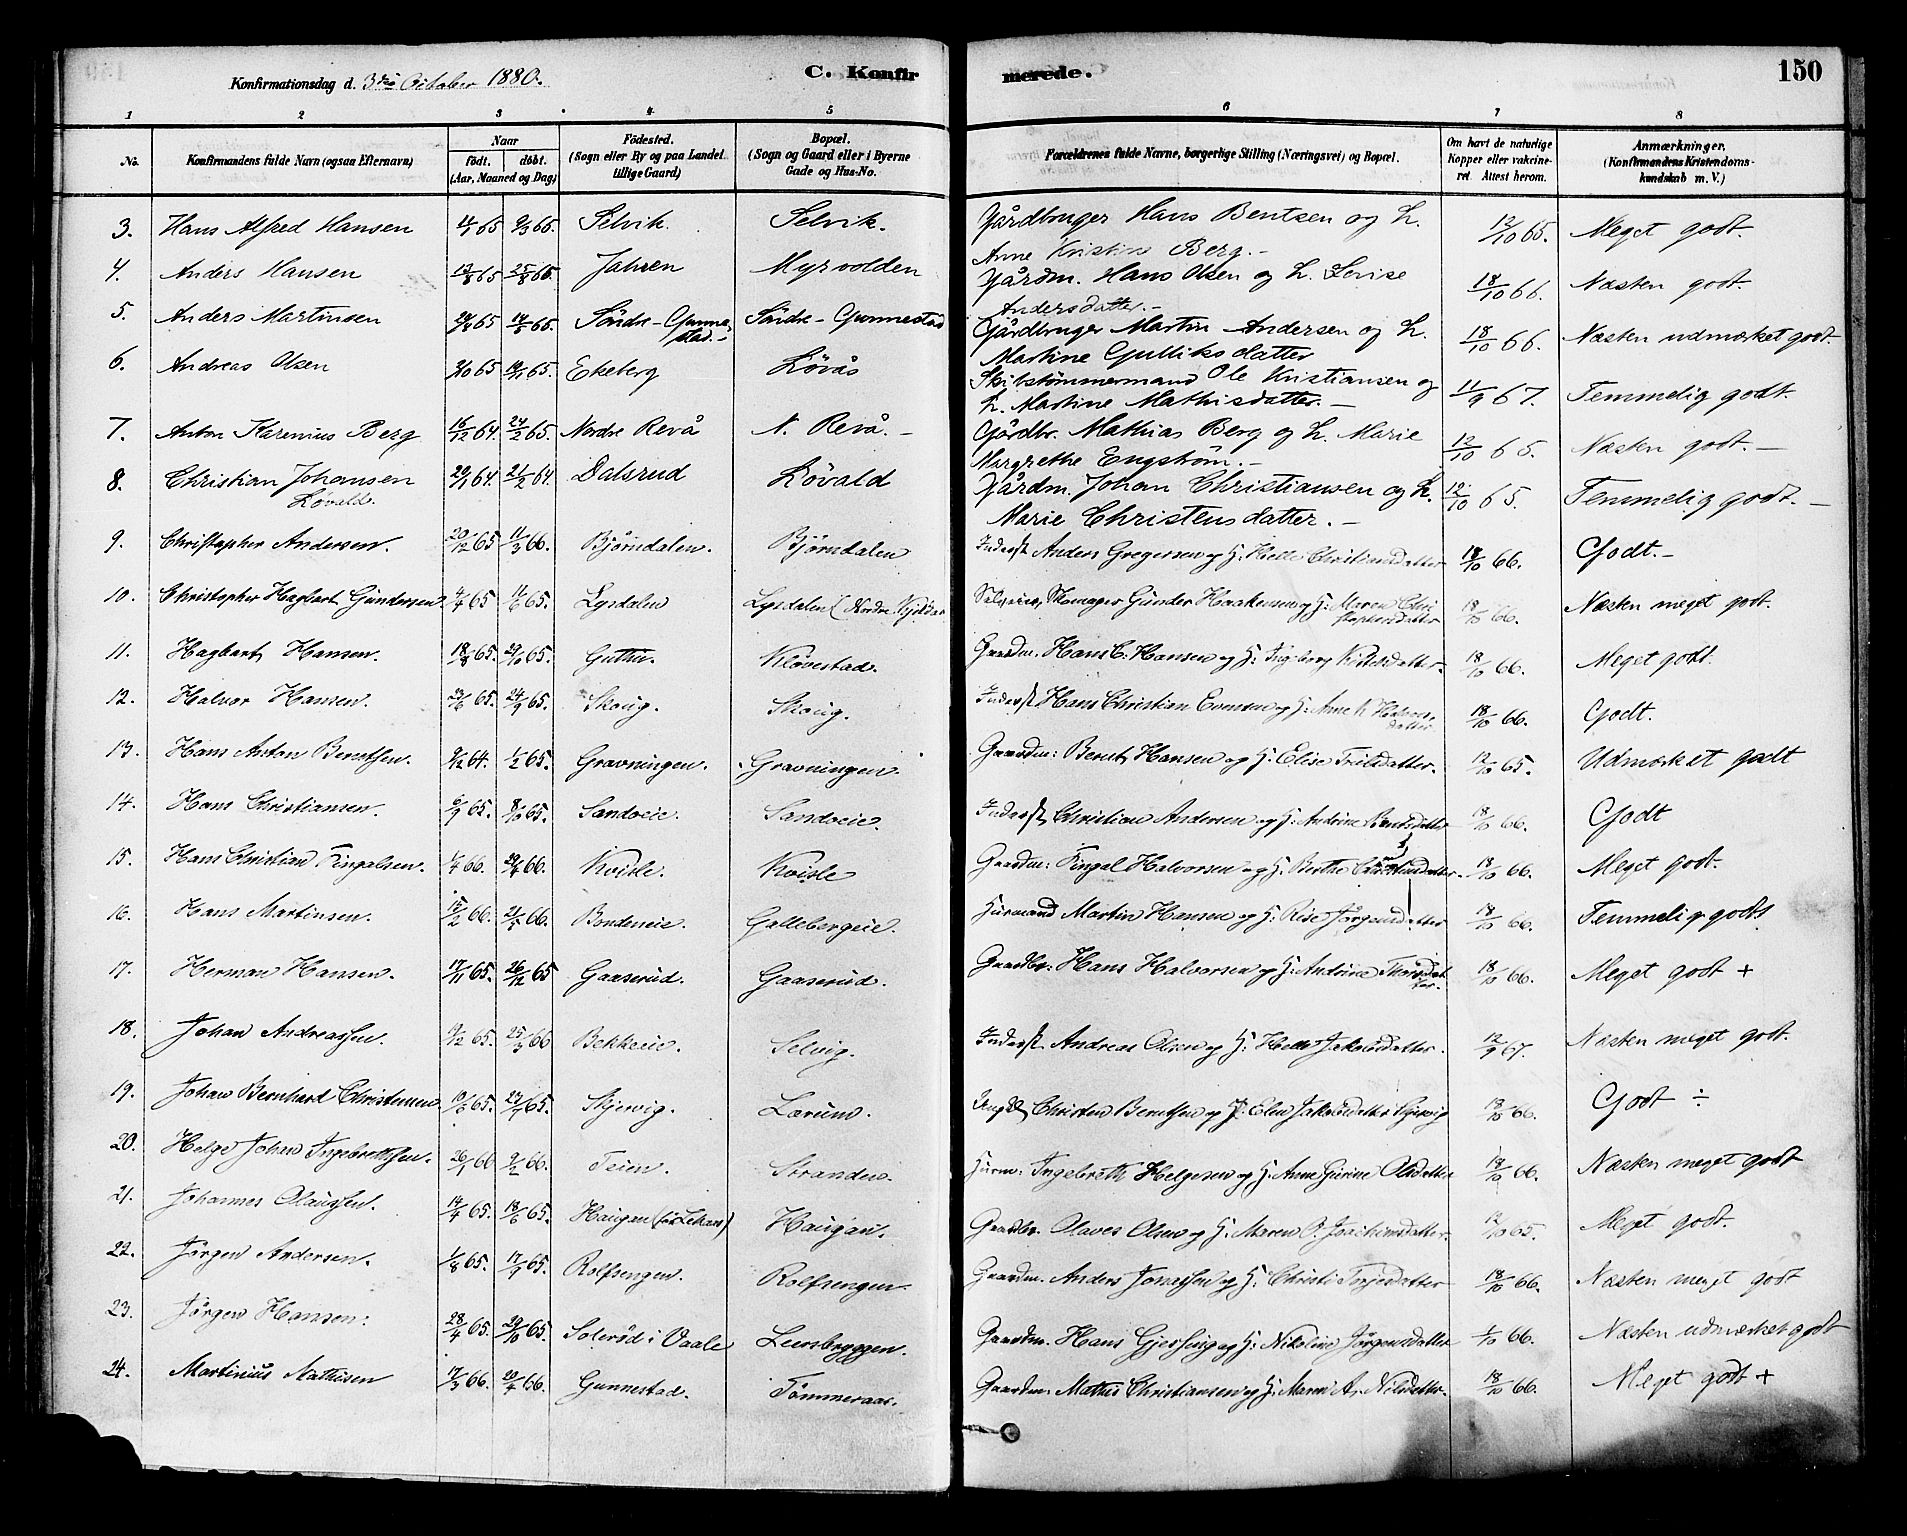 Konfirmationsdag d. 3die October 1880.
C. Konfirmerede.
150
1 2 3 4 5 6 7 8
No.
Konfirmandens fulde Navn (ogsaa Efternavn)
Naar
födt. döbt.
(Aar, Maaned og Dag)
Födested.
(Sogn eller By og paa Landet
tillige Gaard)
Bopæl.
(Sogn og Gaard eller i Byerne
Gade og Hus-No.
Forældrenes fulde Navne, borgerlige Stilling (Næringsvei) og Bopæl.
Om havt de naturlige
Kopper eller vakcine-
ret. Attest herom.
Anmærkninger.
(Konfirmandens Kristendoms-
kundskab m. V.)
3. Hans Alfred Hansen 65 65. Selvik. Selvik. Gårdbruger Hans Bentsen og h. 12/10 65. Meget godt.
Anne Kristine Berg.-
4. Anders Hansen 65 65. Jahren Myrvolden Gårdm. Hans Olsen og h. Lovise 18/10 66. Næsten godt.
Andersdatter.-
5. Anders Martinsen 65 65. Söndre-Gunne- Söndre-Gunnestad Gårdbruger Martin Andersen og h. 18/10 66. Næsten udmærket godt.
stad.-
Martine Gulliksdatter
6. Andreas Olsen 65 65. Ekeberg Lövås Skibstömmermand Ole Kristiansen og 11/9 67. Temmelig godt.
h. Martine Mathisdatter.-
7. Anton Karenius Berg 16/12 64. 65. Nordre Revå N. Revå.- Gårdbr. Mathias Berg og h. Marie 12/10 65. Næsten godt.-
Margrethe Engström.-
8. Christian Johansen 64 64. Dalsrud Lövald Gårdm. Johan Christiansen og h. 12/10 65. Temmelig godt.-
Lövald.
Marie Christensdatter.-
9. Christopher Andersen. 20/12 65 11/3 66. Björndalen. Björndalen Inderst Anders Gregersen og H: Helle Christiansdatter 18/10 66. Godt.-
10. Christopher Hagbart Gundersen 4/4 65 11/6 65. Lysdalen Lysdalen (Nordre Skomager Gunder Haakensen og H: Maren Chri- 18/10 66. Næsten meget godt.
stophersdatter
11. Hagbart Hansen. 18/8 65. 29/10 65. Guthu. Klövestad. Gaardm. Hans C. Hansen og H: Ingeborg 18/10 66. Meget godt.
12. Halvor Hansen. 65. 24/9 65. Skoug. Skoug. Inderst Hans Christian Evensen og H: Anne K Halvors- 18/10 66. Godt.
datter.
13. Hans Anton Berntsen. 9/12 64. 1/2 65. Gravningen. Gravningen. Gaardm: Bernt Hansen og H: Elise 12/10 65. Udmærket godt
14. Hans Christiansen. 6/9 65. 8/10 65. Sandveie. Sandveie. Inderst Christian Andersen og H: Andrine 18/10 66. Godt
15. Hans Christian Fingalsen. 66. 66. Kvisle. Kvisle Gaardm: Fingal Halvorsen og H: Berthe 18/10 66. Meget godt.
16. Hans Martinsen. 15/2 66. 66. Bondeneie. Gallebergeie. Huusmand Martin Hansen og H: Rise Jörgensdatter 18/10 66. Temmelig godt
17. Herman Hansen. 17/11 65. 26/12 65 Gaaserud. Gaaserud. Gaardbr. Hans Halvorsen og H: Andrine Thorsdat- 18/10 66. Meget godt +
ter.
18. Johan Andreassen. 65. 25/3 66 Bekkeeie. Selvig. Inderst Andreas Olsen og H: Helle Jakobsdatter. 12/9 67. Næsten meget godt.
19. Johan Bernhard Christensen 10/6 65. 65. Skjervig. Lærum. Christen Berntsen og Elen Jakobsdatter Skjervig 18/10 66. Godt ÷
20. Helge Johan Ingebrethsen. 26/1 66 9/2 66. Teien. Stranden. Husm. Ingebreth Helgesen og H: Anne Gurine Olsdatter 18/10 66. Næsten meget godt
21. Johannes Olaussen. 14/4 65. 18/6 65. Haugan Haugan. Gaardbr. Olaves Olsen og H: Maren O. Joachimsdatter. 12/10 65. Meget godt.
22. Jörgen Andersen. 1/8 65. 17/9 65. Rolfsengen. Rolfsengen. Gaardm. Anders og H: Christi Torjesdatter 18/10 66. Næsten meget godt
23. Jörgen Hansen. 28/4 65. 29/10 65. Solerød i Vaale Leersbryggen. Gaardm. Hans Gjessing og H: Nikoline Jörgensdatter 66. Næsten udmærket godt
24. Martinius Mathisen 17/3 66. 66. Gunnestad. Tömmeraas. Gaardm. Mathis Christiansen og H: Maren A. Nilsdatter. 18/10 66. Meget godt +